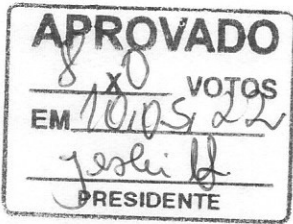 APROVADO
8 x 0 VOTOS
EM 10,05,22
PRESIDENTE